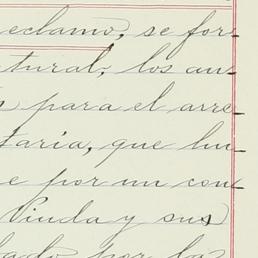 eclamo, se for-
tural, los au-
para el arre-
taria, que hu-
e por un con-
Viuda y sus
lado por la